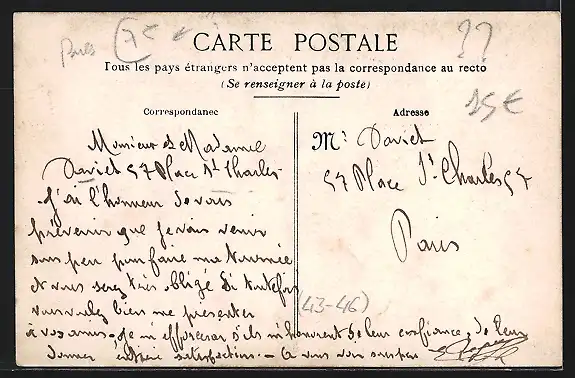 Paris 7e €
??
CARTE POSTALE
Tous les pays étrangers n'acceptent pas la correspondance au recto
(Se renseigner à la poste)
15€
Correspondance
Monsieur et Madame
Daviet 57 Place St Charles
J'ai l'honneur de vous
prévenir que je vais venir
sous peu pour faire ma tournée
et vous serez très obligé si toutefois
vous voulez bien me présenter
à vos amis. Je m'efforcerai s'ils m'honorent de leur confiance, de leur
donner entière satisfaction. — 
Adresse
Mr Daviet
57 Place St Charles 57
Paris
(43-46)